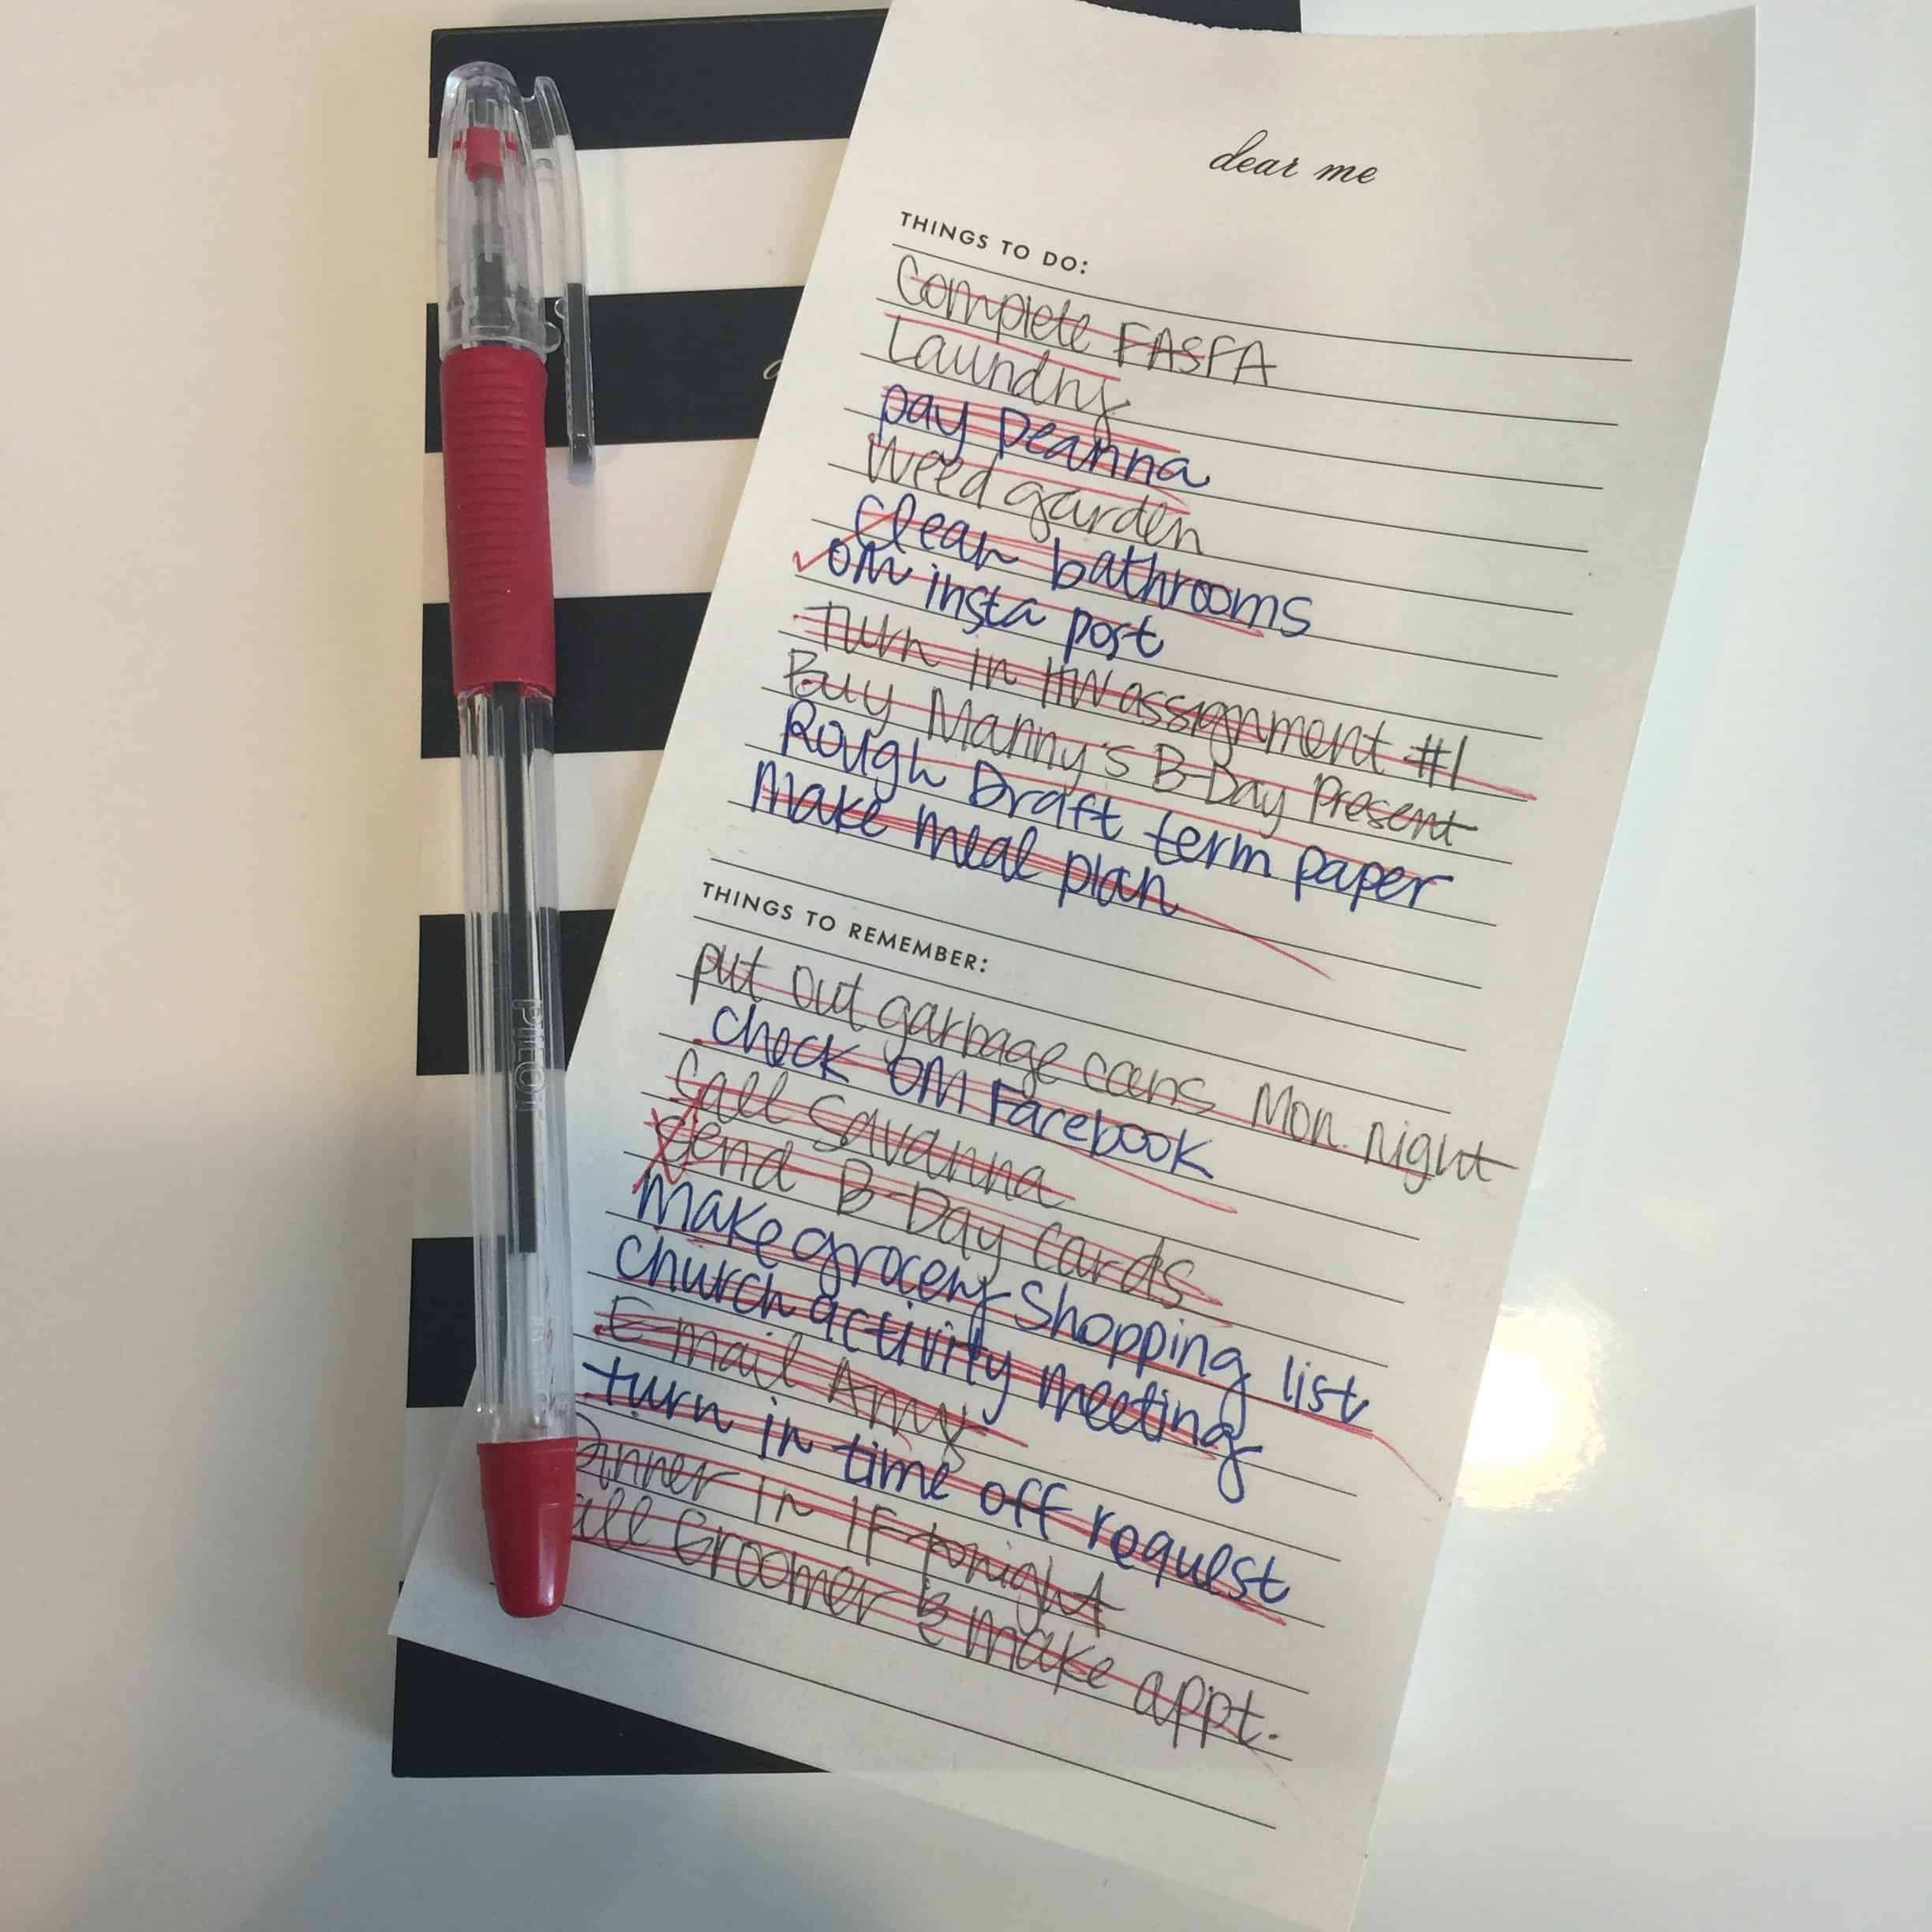 dear me
THINGS TO DO:
Complete FASFA
Laundry
pay Deanna
Weed garden
Clean bathrooms
OM insta post
Turn in HW assignment #1
Buy Manny's B-Day Present
Rough Draft term paper
Make meal plan
THINGS TO REMEMBER:
put out garbage cans Mon. night
check OM Facebook
Call Savanna
Send B-Day Cards
Make grocery Shopping list
Church activity meeting
E-mail Amy
turn in time off request
Dinner in IF tonight
all Groomer & make appt.
PILOT